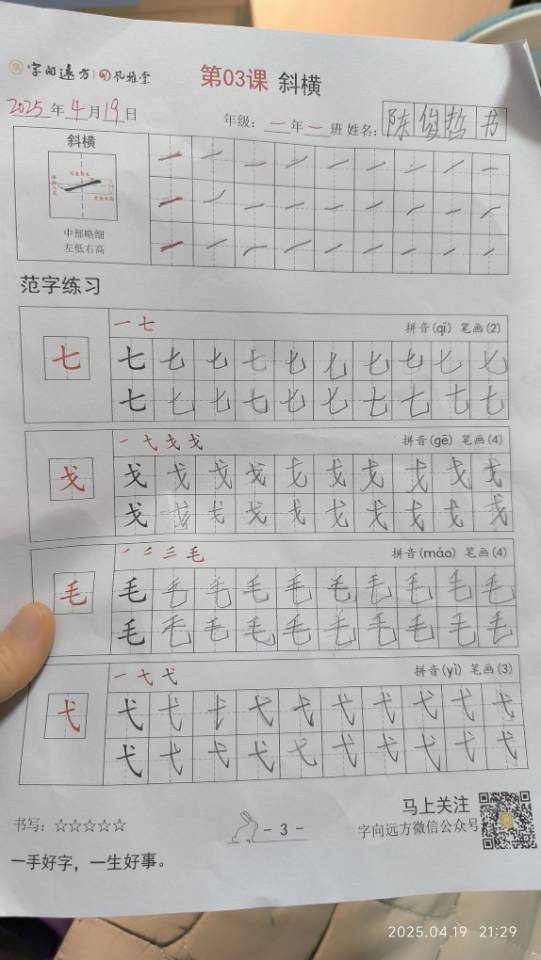 字向远方 孔雅堂
第03课 斜横
2025年4月19日
年级:一年一班 姓名:陈俊哲书
斜横
中部略细
左低右高
范字练习
一 七 拼音(qī) 笔画(2)
七 七 七 七 七 七 七 七 七 七 七
七 七 七 七 七 七 七 七 七 七
一 弋 戈 戈 拼音(gē) 笔画(4)
戈 戈 戈 戈 戈 戈 戈 戈 戈 戈 戈
戈 戈 戈 戈 戈 戈 戈 戈 戈 戈
毛 拼音(máo) 笔画(4)
毛 毛 毛 毛 毛 毛 毛 毛 毛 毛 毛
毛 毛 毛 毛 毛 毛 毛 毛 毛 毛
一 弋 弋 拼音(yì) 笔画(3)
弋 弋 弋 弋 弋 弋 弋 弋 弋 弋 弋
弋 弋 弋 弋 弋 弋 弋 弋 弋 弋
书写:☆☆☆☆☆
- 3 -
马上关注
字向远方微信公众号
一手好字,一生好事。
2025.04.19 21:29